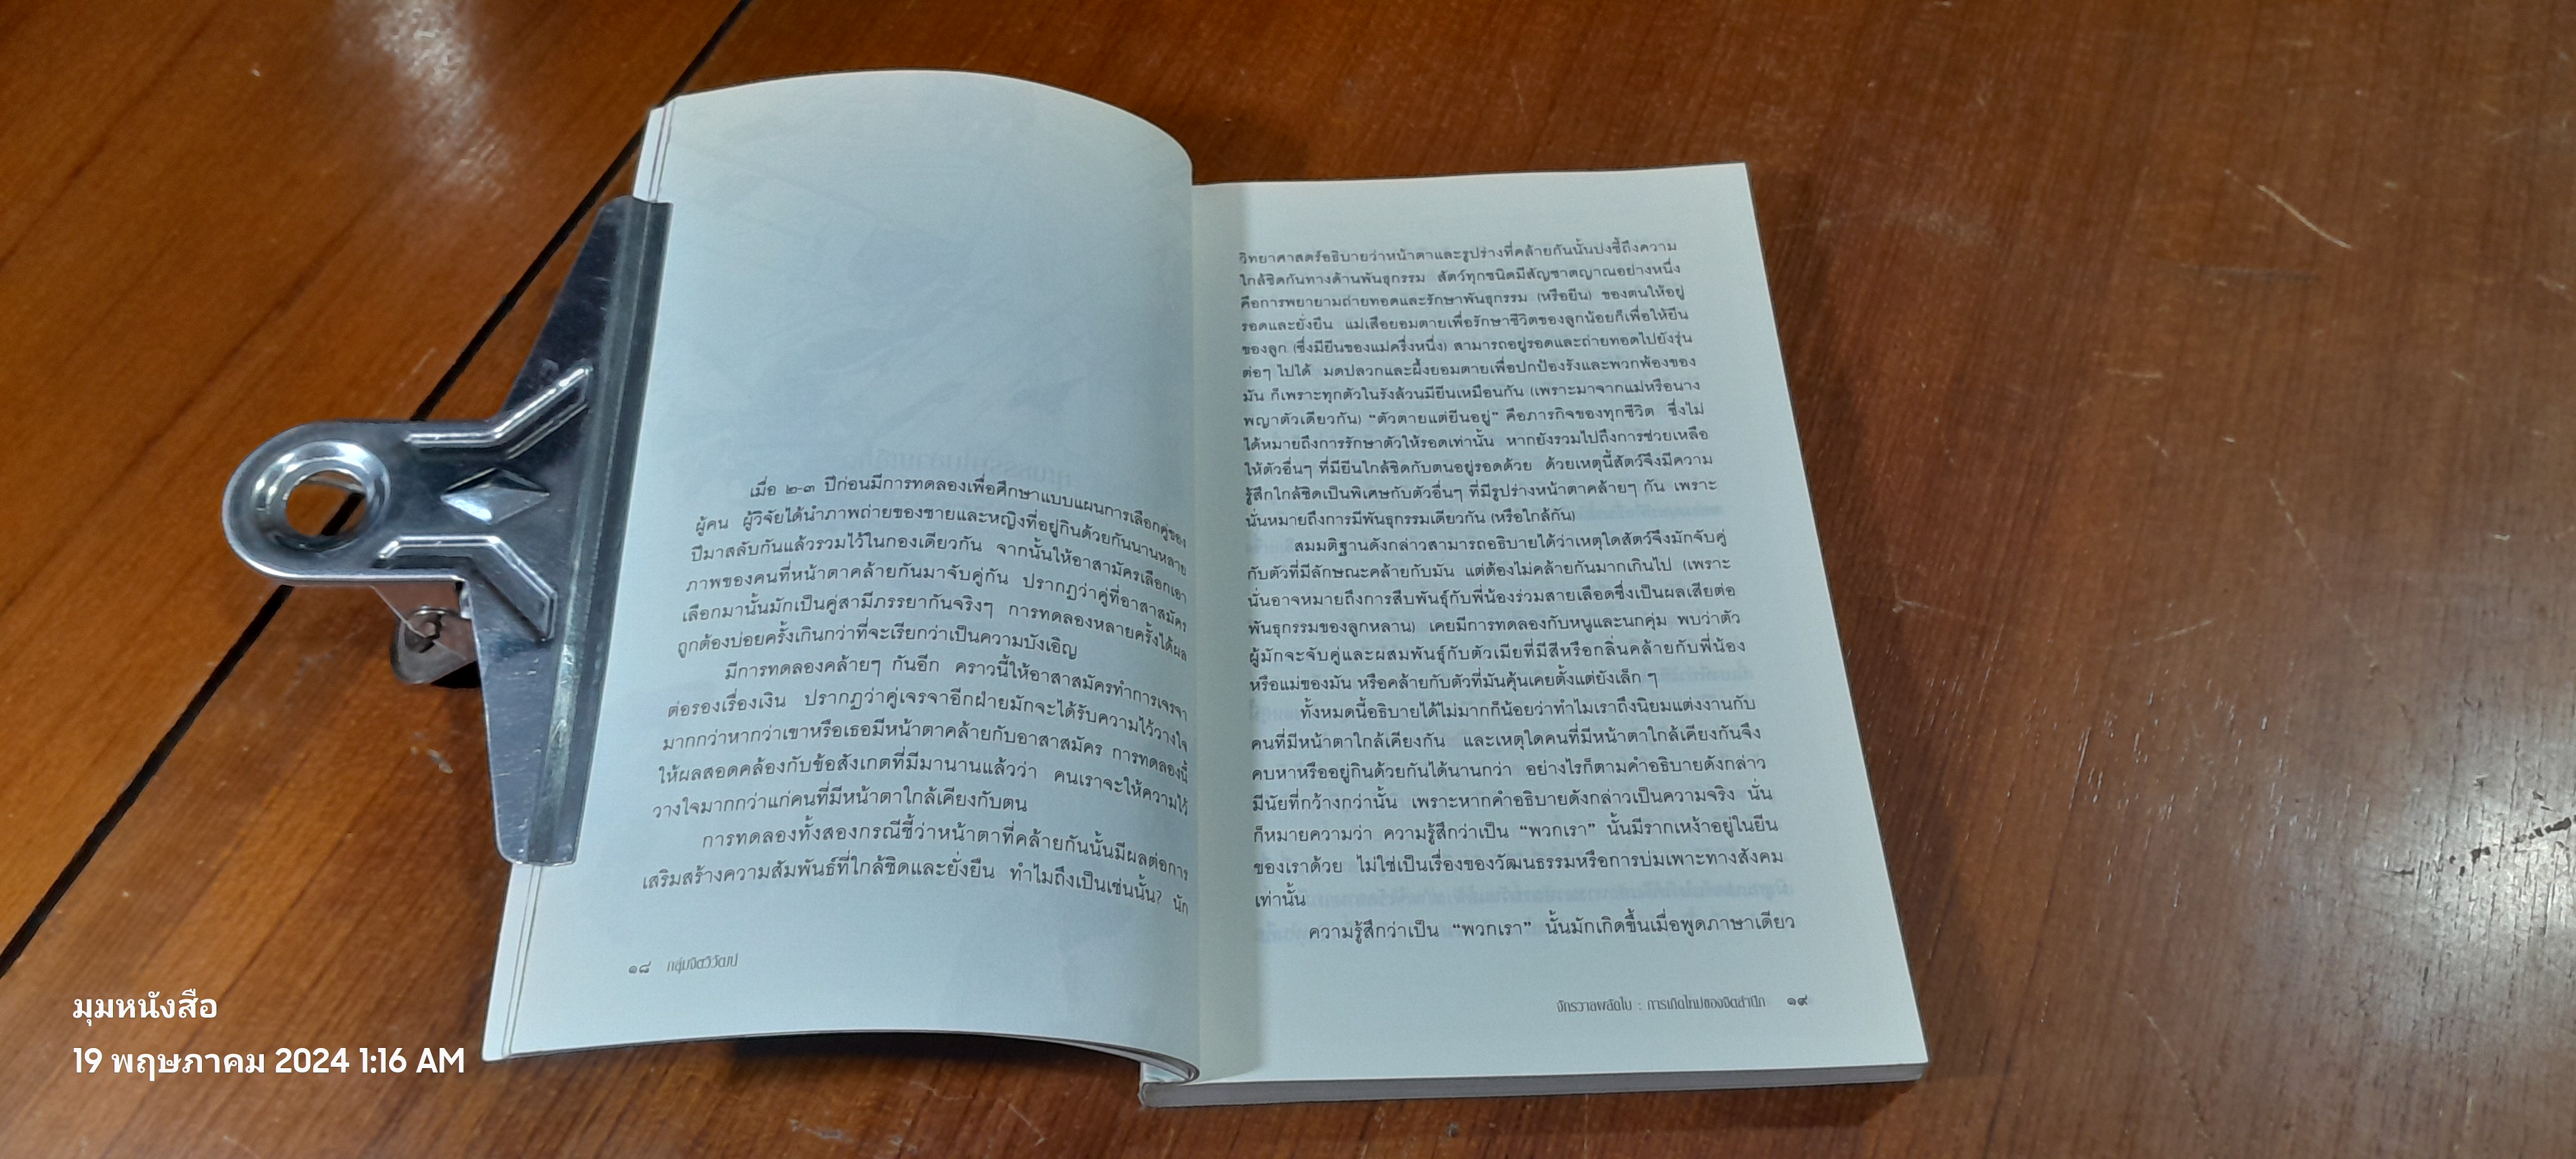 เมื่อ ๒-๓ ปีก่อนมีการทดลองเพื่อศึกษาแบบแผนการเลือกคู่ของ
ผู้คน ผู้วิจัยได้นำภาพถ่ายของชายและหญิงที่อยู่กินด้วยกันนานหลาย
ปีมาสลับกันแล้วรวมไว้ในกองเดียวกัน จากนั้นให้อาสามัครเลือกเอา
ภาพของคนที่หน้าตาคล้ายกันมาจับคู่กัน ปรากฏว่าคู่ที่อาสาสมัคร
เลือกมานั้นมักเป็นคู่สามีภรรยากันจริงๆ การทดลองหลายครั้งได้ผล
ถูกต้องบ่อยครั้งเกินกว่าที่จะเรียกว่าเป็นความบังเอิญ
มีการทดลองคล้ายๆ กันอีก คราวนี้ให้อาสาสมัครทำการเจรจา
ต่อรองเรื่องเงิน ปรากฏว่าคู่เจรจาอีกฝ่ายมักจะได้รับความไว้วางใจ
มากกว่าหากว่าเขาหรือเธอมีหน้าตาคล้ายกับอาสาสมัคร การทดลองนี้
ให้ผลสอดคล้องกับข้อสังเกตที่มีมานานแล้วว่า คนเราจะให้ความไว้
วางใจมากกว่าแก่คนที่มีหน้าตาใกล้เคียงกับตน
การทดลองทั้งสองกรณีชี้ว่าหน้าตาที่คล้ายกันนั้นมีผลต่อการ
เสริมสร้างความสัมพันธ์ที่ใกล้ชิดและยั่งยืน ทำไมถึงเป็นเช่นนั้น? นัก
๑๘ กลุ่มจิตวิวัฒน์
วิทยาศาสตร์อธิบายว่าหน้าตาและรูปร่างที่คล้ายกันนั้นบ่งชี้ถึงความ
ใกล้ชิดกันทางด้านพันธุกรรม สัตว์ทุกชนิดมีสัญชาตญาณอย่างหนึ่ง
คือการพยายามถ่ายทอดและรักษาพันธุกรรม (หรือยีน) ของตนให้อยู่
รอดและยั่งยืน แม่เสือยอมตายเพื่อรักษาชีวิตของลูกน้อยก็เพื่อให้ยีน
ของลูก (ซึ่งมียีนของแม่ครึ่งหนึ่ง) สามารถอยู่รอดและถ่ายทอดไปยังรุ่น
ต่อๆ ไปได้ มดปลวกและผึ้งยอมตายเพื่อปกป้องรังและพวกพ้องของ
มัน ก็เพราะทุกตัวในรังล้วนมียีนเหมือนกัน (เพราะมาจากแม่หรือนาง
พญาตัวเดียวกัน) “ตัวตายแต่ยีนอยู่” คือภารกิจของทุกชีวิต ซึ่งไม่
ได้หมายถึงการรักษาตัวให้รอดเท่านั้น หากยังรวมไปถึงการช่วยเหลือ
ให้ตัวอื่นๆ ที่มียีนใกล้ชิดกับตนอยู่รอดด้วย ด้วยเหตุนี้สัตว์จึงมีความ
รู้สึกใกล้ชิดเป็นพิเศษกับตัวอื่นๆ ที่มีรูปร่างหน้าตาคล้ายๆ กัน เพราะ
นั่นหมายถึงการมีพันธุกรรมเดียวกัน (หรือใกล้กัน)
สมมติฐานดังกล่าวสามารถอธิบายได้ว่าเหตุใดสัตว์จึงมักจับคู่
กับตัวที่มีลักษณะคล้ายกับมัน แต่ต้องไม่คล้ายกันมากเกินไป (เพราะ
นั่นอาจหมายถึงการสืบพันธุ์กับพี่น้องร่วมสายเลือดซึ่งเป็นผลเสียต่อ
พันธุกรรมของลูกหลาน) เคยมีการทดลองกับหนูและนกคุ่ม พบว่าตัว
ผู้มักจะจับคู่และผสมพันธุ์กับตัวเมียที่มีสีหรือกลิ่นคล้ายกับพี่น้อง
หรือแม่ของมัน หรือคล้ายกับตัวที่มันคุ้นเคยตั้งแต่ยังเล็ก ๆ
ทั้งหมดนี้อธิบายได้ไม่มากก็น้อยว่าทำไมเราถึงนิยมแต่งงานกับ
คนที่มีหน้าตาใกล้เคียงกัน และเหตุใดคนที่มีหน้าตาใกล้เคียงกันจึง
คบหาหรืออยู่กินด้วยกันได้นานกว่า อย่างไรก็ตามคำอธิบายดังกล่าว
มีนัยที่กว้างกว่านั้น เพราะหากคำอธิบายดังกล่าวเป็นความจริง นั่น
ก็หมายความว่า ความรู้สึกว่าเป็น “พวกเรา” นั้นมีรากเหง้าอยู่ในยีน
ของเราด้วย ไม่ใช่เป็นเรื่องของวัฒนธรรมหรือการบ่มเพาะทางสังคม
เท่านั้น
ความรู้สึกว่าเป็น “พวกเรา” นั้นมักเกิดขึ้นเมื่อพูดภาษาเดียว
จักรวาลผลัดใบ : การเกิดใหม่ของจิตสำนึก ๑๙
มุมหนังสือ
19 พฤษภาคม 2024 1:16 AM